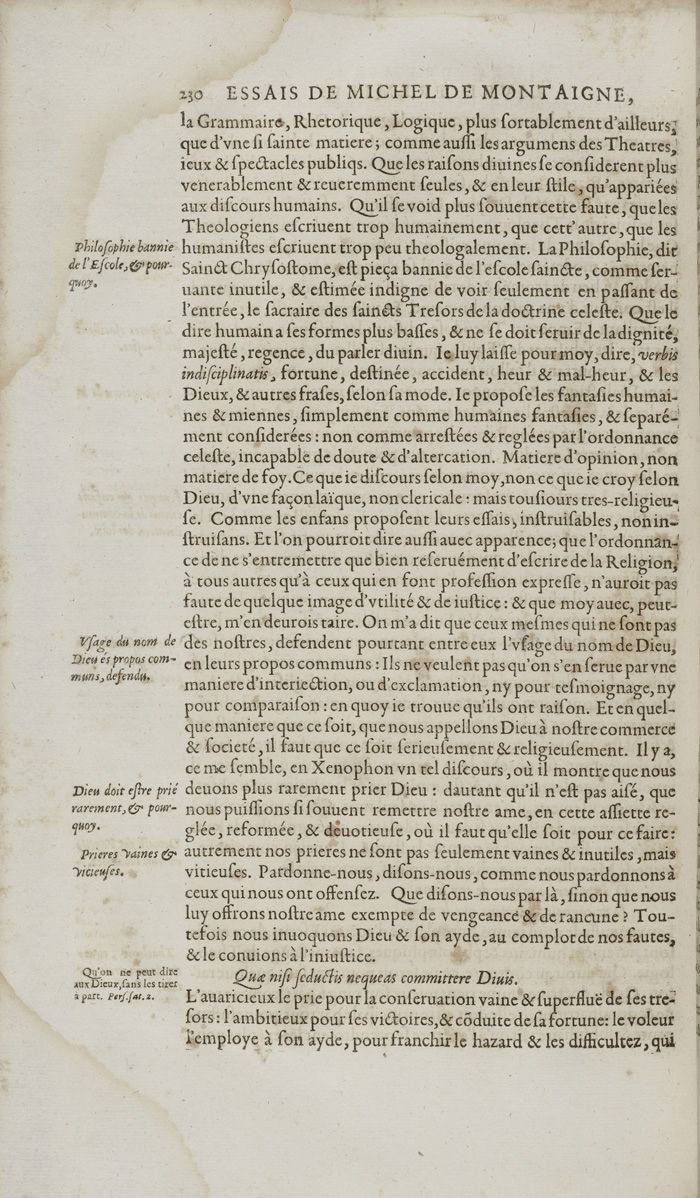 230 ESSAIS DE MICHEL DE MONTAIGNE,
la Grammaire, Rhetorique, Logique, plus ſortablement d'ailleurs,
que d'vne ſi ſainte matiere; comme auſſi les argumens des Theatres,
ieux & ſpectacles publiqs. Que les raiſons diuines ſe conſiderent plus
venerablement & reueremment ſeules, & en leur ſtile, qu'appariées
aux diſcours humains. Qu'il ſe void plus ſouuent cette faute, que les
Theologiens eſcriuent trop humainement, que cett'autre, que les
Philoſophie bannie
de l'Eſcole, & pour-
quoy.
humaniſtes eſcriuent trop peu theologalement. La Philoſophie, dit
Sainct Chryſoſtome, eſt pieça bannie de l'eſcole ſaincte, comme ſer-
uante inutile, & eſtimée indigne de voir ſeulement en paſſant de
l'entrée, le ſacraire des ſaincts Treſors de la doctrine celeſte. Que le
dire humain a ſes formes plus baſſes, & ne ſe doit ſeruir de la dignité,
majeſté, regence, du parler diuin. Ie luy laiſſe pour moy, dire, verbis
indiſciplinatis, fortune, deſtinée, accident, heur & mal-heur, & les
Dieux, & autres fraſes, ſelon ſa mode. Ie propoſe les fantaſies humai-
nes & miennes, ſimplement comme humaines fantaſies, & ſeparé-
ment conſiderées: non comme arreſtées & reglées par l'ordonnance
celeſte, incapable de doute & d'altercation. Matiere d'opinion, non
matiere de foy. Ce que ie diſcours ſelon moy, non ce que ie croy ſelon
Dieu, d'vne façon laïque, non clericale: mais touſiours tres-religieu-
ſe. Comme les enfans propoſent leurs eſſais, inſtruiſables, non in-
ſtruiſans. Et l'on pourroit dire auſſi auec apparence; que l'ordonnan-
ce de ne s'entremettre que bien reſeruément d'eſcrire de la Religion,
à tous autres qu'à ceux qui en font profeſſion expreſſe, n'auroit pas
faute de quelque image d'vtilité & de iuſtice: & que moy auec, peut-
eſtre, m'en deurois taire. On m'a dit que ceux meſmes qui ne ſont pas
Vſage du nom de
Dieu és propos com-
muns, defendu.
des noſtres, defendent pourtant entre eux l'vſage du nom de Dieu,
en leurs propos communs: Ils ne veulent pas qu'on s'en ſerue par vne
maniere d'interiection, ou d'exclamation, ny pour teſmoignage, ny
pour comparaiſon: en quoy ie trouue qu'ils ont raiſon. Et en quel-
que maniere que ce ſoit, que nous appellons Dieu à noſtre commerce
& ſocieté, il faut que ce ſoit ſerieuſement & religieuſement. Il y a,
ce me ſemble, en Xenophon vn tel diſcours, où il montre que nous
Dieu doit eſtre prié
rarement, & pour-
quoy.
deuons plus rarement prier Dieu: dautant qu'il n'eſt pas aiſé, que
nous puiſſions ſi ſouuent remettre noſtre ame, en cette aſſiette re-
glée, reformée, & deuotieuſe, où il faut qu'elle ſoit pour ce faire:
Prieres vaines &
vicieuſes.
autrement nos prieres ne ſont pas ſeulement vaines & inutiles, mais
vitieuſes. Pardonne-nous, diſons-nous, comme nous pardonnons à
ceux qui nous ont offenſez. Que diſons-nous par là, ſinon que nous
luy offrons noſtre ame exempte de vengeance & de rancune? Tou-
tefois nous inuoquons Dieu & ſon ayde, au complot de nos fautes,
& le conuions à l'iniuſtice.
Qu'on ne peut dire
aux Dieux, ſans les tirer
à part. Perſ. ſat. 2.
Quæ niſi ſeductis nequeas committere Diuis.
L'auaricieux le prie pour la conſeruation vaine & ſuperfluë de ſes tre-
ſors: l'ambitieux pour ſes victoires, & cõduite de ſa fortune: le voleur
l'employe à ſon ayde, pour franchir le hazard & les difficultez, qui